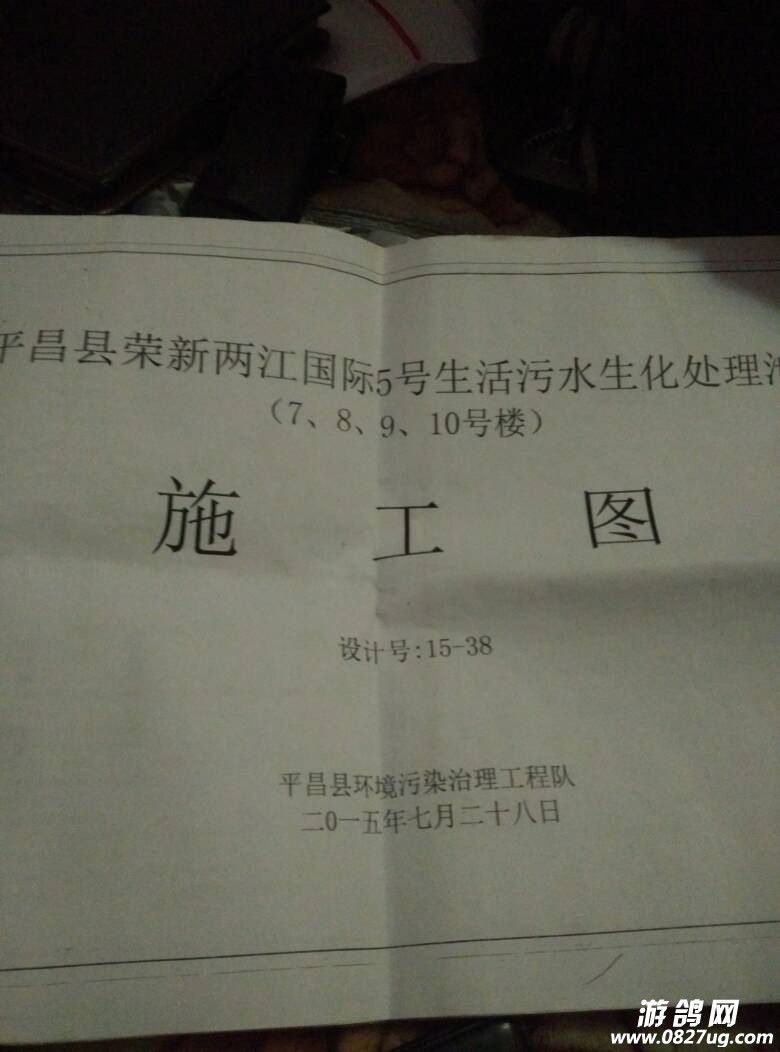 平昌县荣新两江国际5号生活污水生化处理池
（7、8、9、10号楼）
施工图
设计号:15-38
平昌县环境污染治理工程队
二0一五年七月二十八日
游鸽网
www.0827ug.com